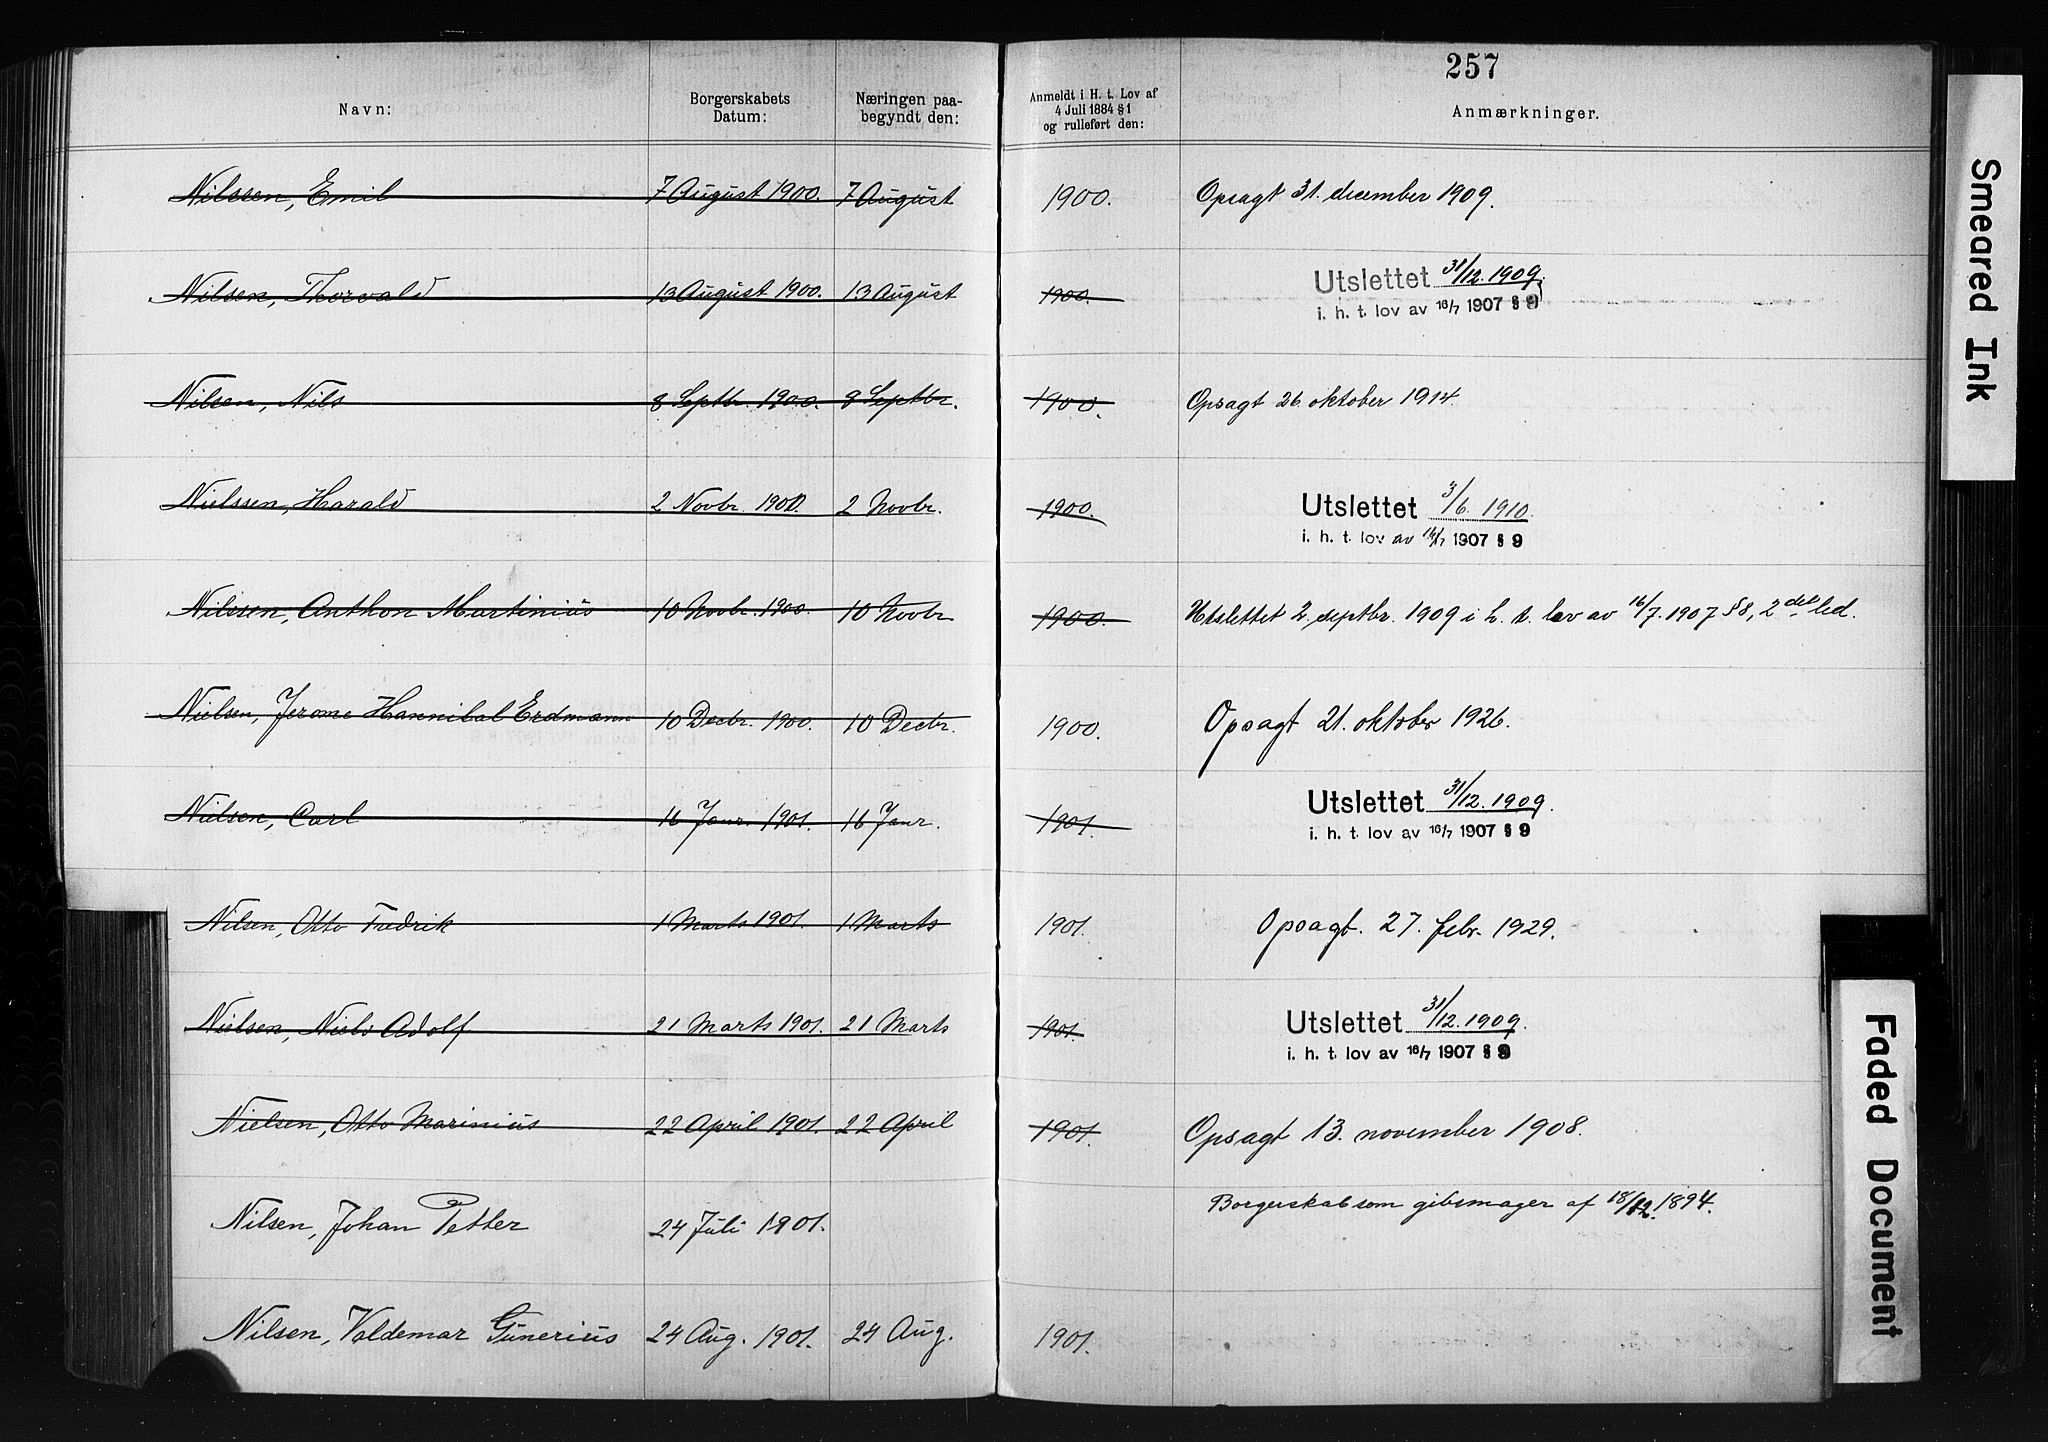 257
Navn: Borgerskabets Datum: Næringen paa-begyndt den: Anmeldt i H. t. Lov af 4 Juli 1884 § 1 og rulleført den: Anmærkninger.
Nilssen, Emil 7 August 1900. 7 August 1900. Opsagt 31. december 1909.
Nilsen, Thorvald 13 August 1900. 13 August 1900. Utslettet 31/12. 1909.
i. h. t. lov av 16/7 1907 § 9
Nilsen, Nils 8 Septbr. 1900. 8 Septbr. 1900. Opsagt 26. oktober 1914.
Nielssen, Harald 2 Novbr. 1900. 2 Novbr. 1900. Utslettet 3/6. 1910.
i. h. t. lov av 16/7 1907 § 9
Nilssen, Anthon Martinius 10 Novbr. 1900. 10 Novbr 1900. Utslettet 2. septbr. 1909 i h. t. lov av 16/7. 1907 § 8, 2det led.
Nielsen, Jerome Hannibal Erdmann 10 Decbr. 1900. 10 Decbr. 1900. Opsagt 21. oktober 1926.
Nielsen, Carl 16 Janr. 1901. 16 Janr. 1901. Utslettet 31/12. 1909.
i. h. t. lov av 16/7 1907 § 9
Nilsen, Otto Fredrik 1 Marts 1901. 1 Marts 1901. Opsagt. 27. febr. 1929.
Nielsen, Niels Adolf 21 Marts 1901. 21 Marts 1901. Utslettet 31/12. 1909.
i. h. t. lov av 16/7 1907 § 9
Nielsen, Otto Marinius 22 April 1901. 22 April 1901. Opsagt 13. november 1908.
Nilsen, Johan Petter 24 Juli 1901. Borgerskab som gibsmager af 18/12. 1894.
Nilsen, Valdemar Gunerius 24 Aug. 1901. 24 Aug. 1901.
Smeared Ink
Faded Document